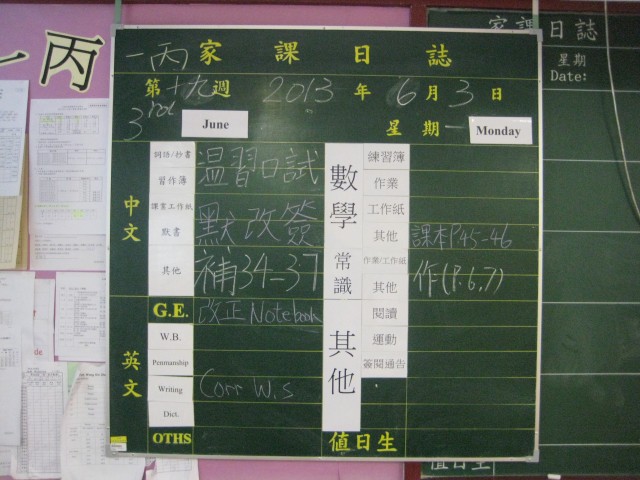 一丙
一丙 家課日誌
第十九週 2013年6月3日
3rd June 星期一 Monday
中文
詞語/抄書
習作簿
溫習口試
課業工作紙
默書
默改簽
其他
補34-37
數學
練習簿
作業
工作紙
其他
課本P45-46
常識
作業/工作紙
其他
作(P.6,7)
英文
G.E. 改正Notebook
W.B.
Penmanship
Writing Corr W.s
Dict.
OTHS
其他
閱讀
運動
簽閱通告
值日生
家課日誌
星期
Date:
值日生